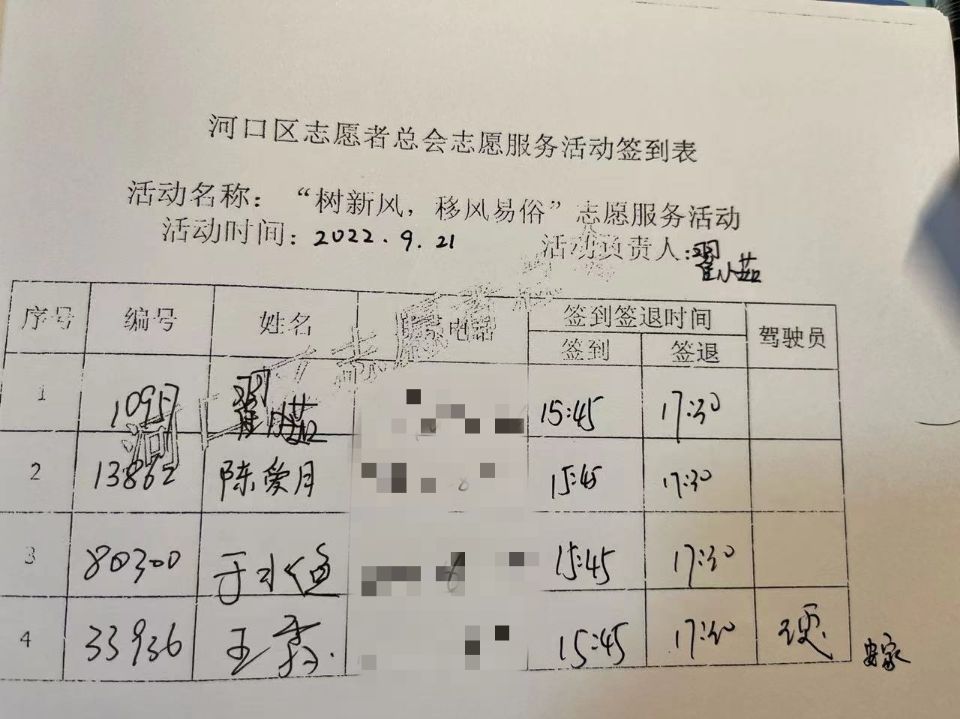 河口区志愿者总会志愿服务活动签到表
活动名称：“树新风，移风易俗”志愿服务活动
活动时间：2022.9.21 活动负责人：翟小茹
序号 编号 姓名 联系电话 签到签退时间 驾驶员
签到 签退
1 翟小茹 15:45 17:30
2 13862 陈爱月 15:45 17:30
3 80300 15:45 17:30
4 33936 王 15:45 17:30